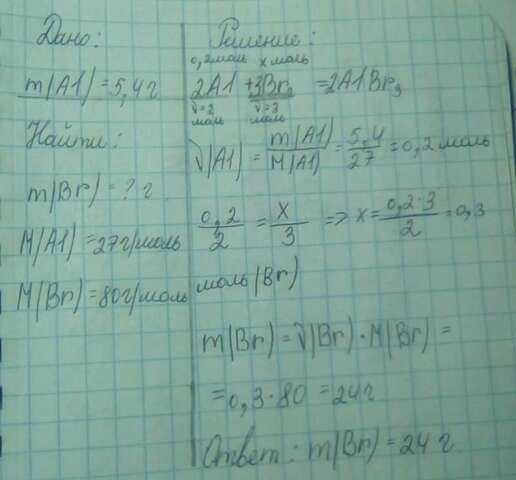 Дано:
m(Al) = 5,4 г
Найти:
m(Br) = ? г
M(Al) = 27 г/моль
M(Br) = 80 г/моль
Решение:
0,2 моль x моль
2Al + 3Br₂ = 2AlBr₃
ν=2 ν=3
моль моль
ν(Al) = m(Al)/M(Al) = 5,4/27 = 0,2 моль
0,2/2 = x/3 => x = 0,2·3/2 = 0,3
моль (Br)
m(Br) = ν(Br) · M(Br) =
= 0,3 · 80 = 24 г
Ответ: m(Br) = 24 г